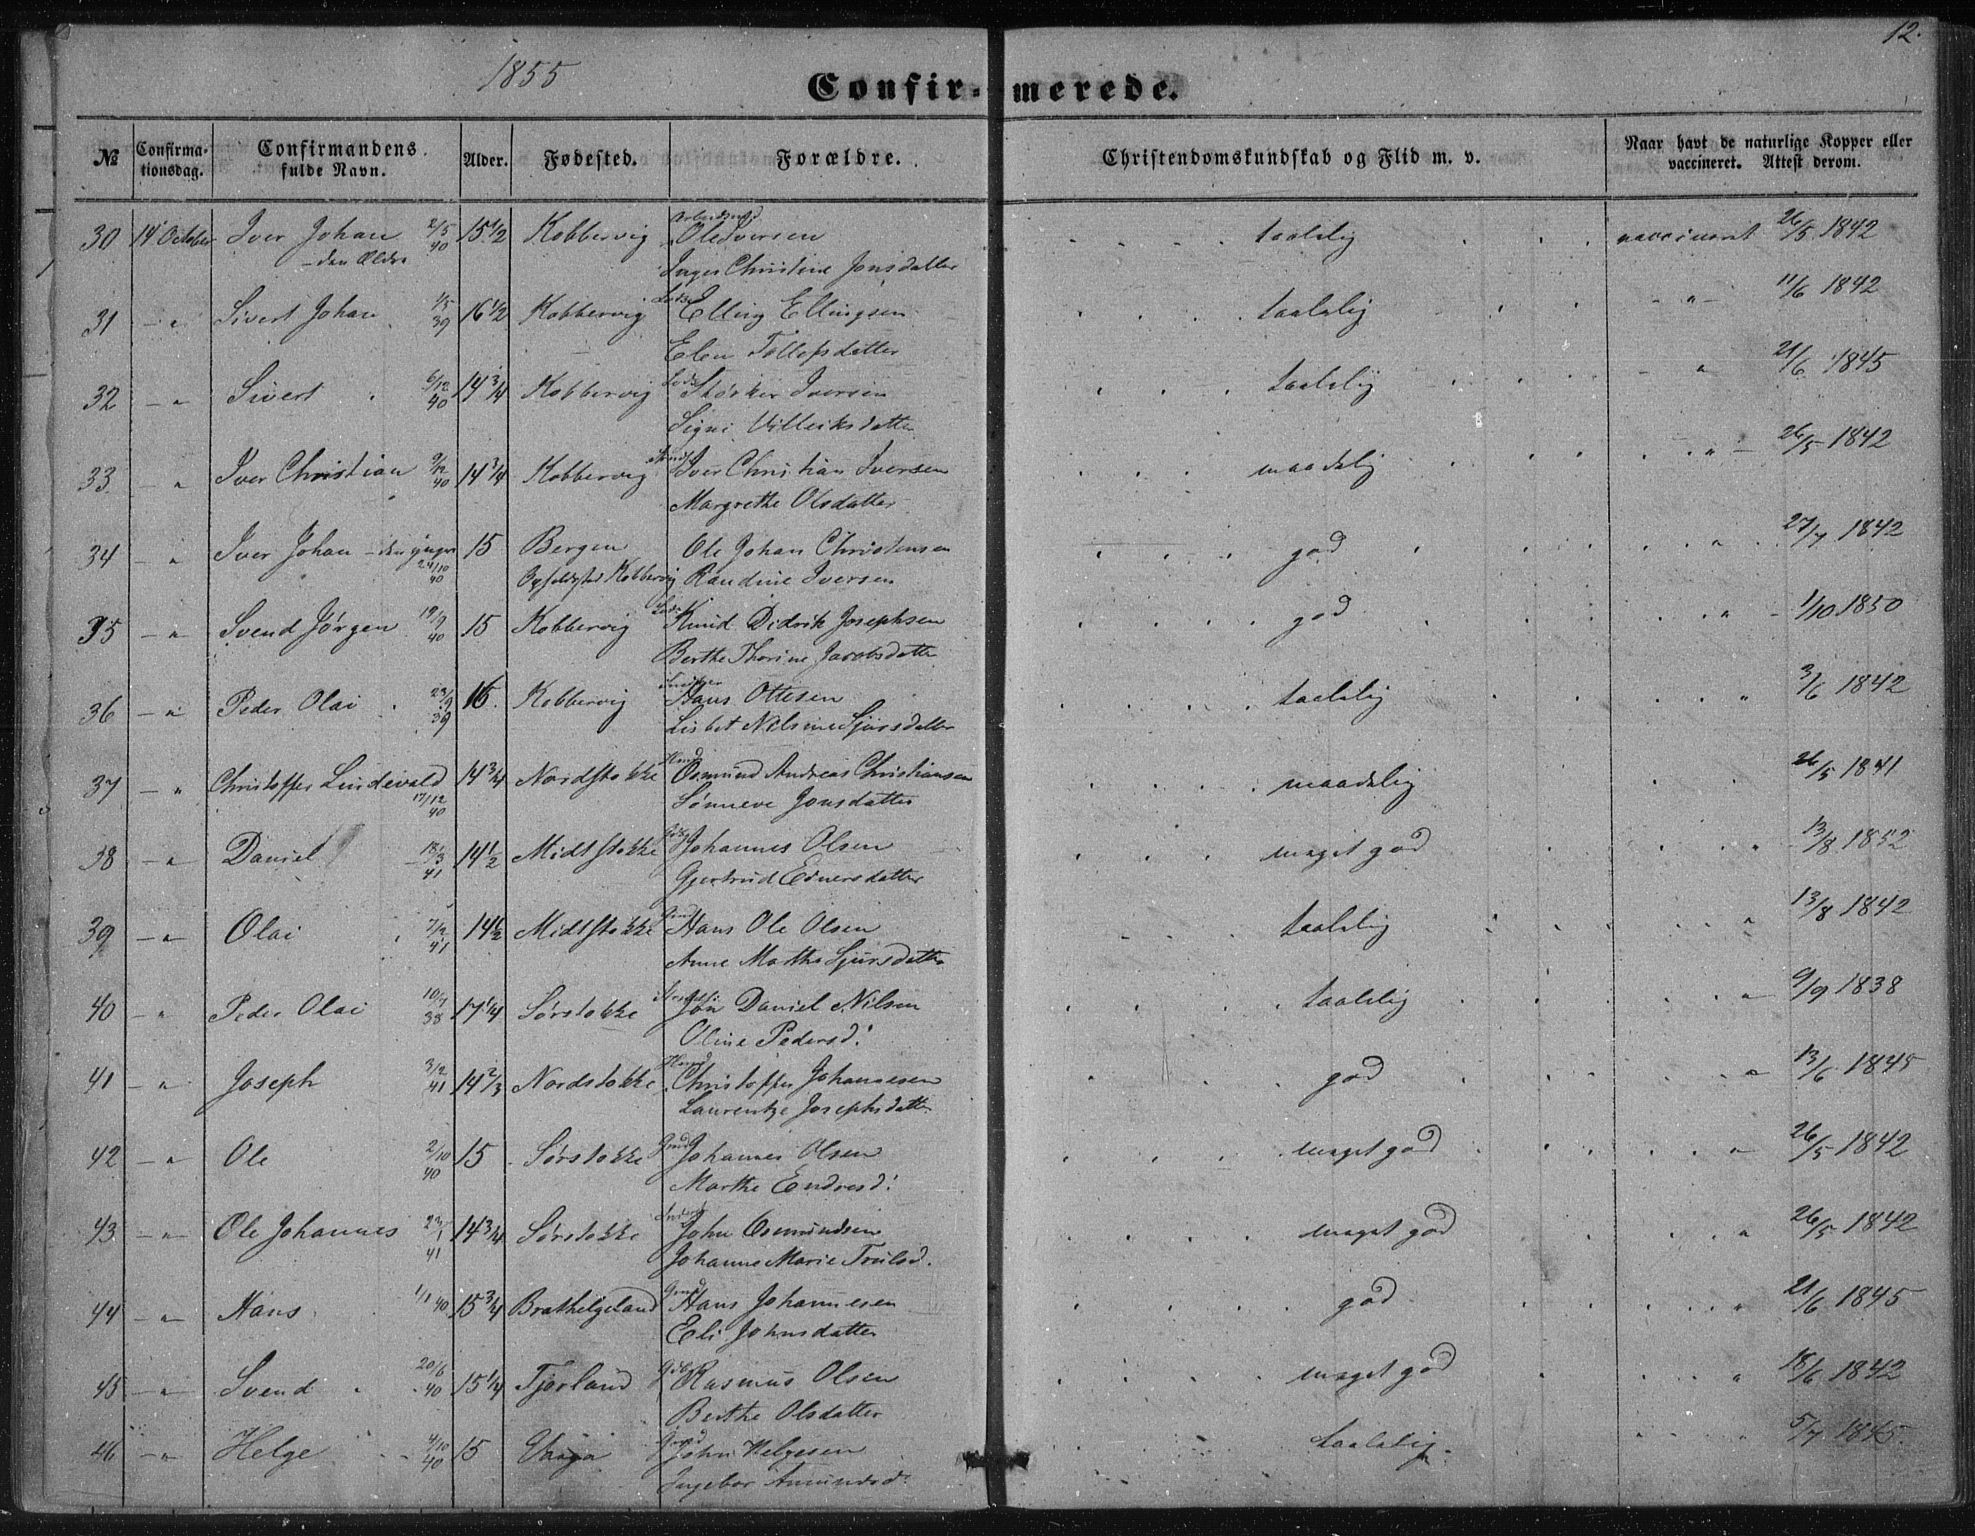 12.
1855
Confirmerede.
№ Confirmationsdag. Confirmandens fulde Navn. Alder. Fødested. Forældre. Christendomskundskab og Flid m. v. Naar havt de naturlige Kopper eller vaccineret. Attest derom.
Arbeidsmd
30 14 October Iver Johan 2/5 40 15 1/2 Kobbervig Ole Iversen taalelig vaccineret 26/5 1842
den Ældre Inger Christine Jonsdatter
31 — " Sivert Johan 1/5 39 16 1/2 Kobbervig Lods Elling Ellingsen taalelig — " — 11/6 1842
Elen Tollefsdatter
32 — " Sivert 6/12 40 14 3/4 Kobbervig Lods Størker Iversen taalelig — " 21/6 1845
Signi Villeiksdatter
33 — " Iver Christian 9/12 40 14 3/4 Kobbervig Iver Christian Iversen maadelig " — 26/5 1842
Margrethe Olsdatter
34 — " Iver Johan — den yngre 24/10 40 15 Bergen Ole Johan Christensen god " 27/7 1842
Opholdssted Kobbervig Randine Iversen
35 — " Svend Jørgen 19/9 40 15 Kobbervig Lods Knud Didrik Josephsen god " 1/10 1850
Berthe Thorine Jacobsdatter
36 — " Peder Olai 23/9 39 16 Kobbervig Snidker Hans Ottesen taalelig " 3/6 1842
Lisbet Nilsine Sjursdatter
37 — " Christoffer Lindevald 17/12 40 14 3/4 Nordstokke Hmd Osmund Andreas Christiansen maadelig 26/5 1841
Sønneve Jonsdatter
38 — " Daniel 18/3 41 14 1/2 Midtstokke Johannes Olsen meget god " 13/8 1852
Gjertrud Ednersdatter
39 — " Olai 7/2 41 14 1/2 Midtstokke Gmd Hans Ole Olsen taalelig " 13/8 1842
Anne Marthe Sjursdatter
40 — " Peder Olai 10/7 38 17 1/4 Sørstokke Jon Daniel Nilsen taalelig " 9/9 1838
Oline Pedersd:
41 — " Joseph 3/2 41 14 2/3 Nordstokke Hmd Christoffer Johannesen god " 13/6 1845
Laurentze Josephsdatter
42 — " Ole 2/10 40 15 Sørstokke Gmd Johannes Olsen meget god " 26/5 1842
Marthe Endresd:
43 — " Ole Johannes 23/1 41 14 3/4 Sørstokke John Osmundsen meget god " 26/5 1842
Johanne Marie Trulsd.
44 — " Hans 1/1 40 15 3/4 Brathelgeland Gmd Hans Johannesen god " 21/6 1845
Eli Johnsdatter
45 — " Svend 20/6 40 15 1/4 Fjorland Rasmus Olsen meget god " 18/6 1842
Berthe Olsdatter
46 — " Helge 4/10 40 15 Gmd John Helgesen taalelig " 5/7 1845
Ingebor Amundsd.